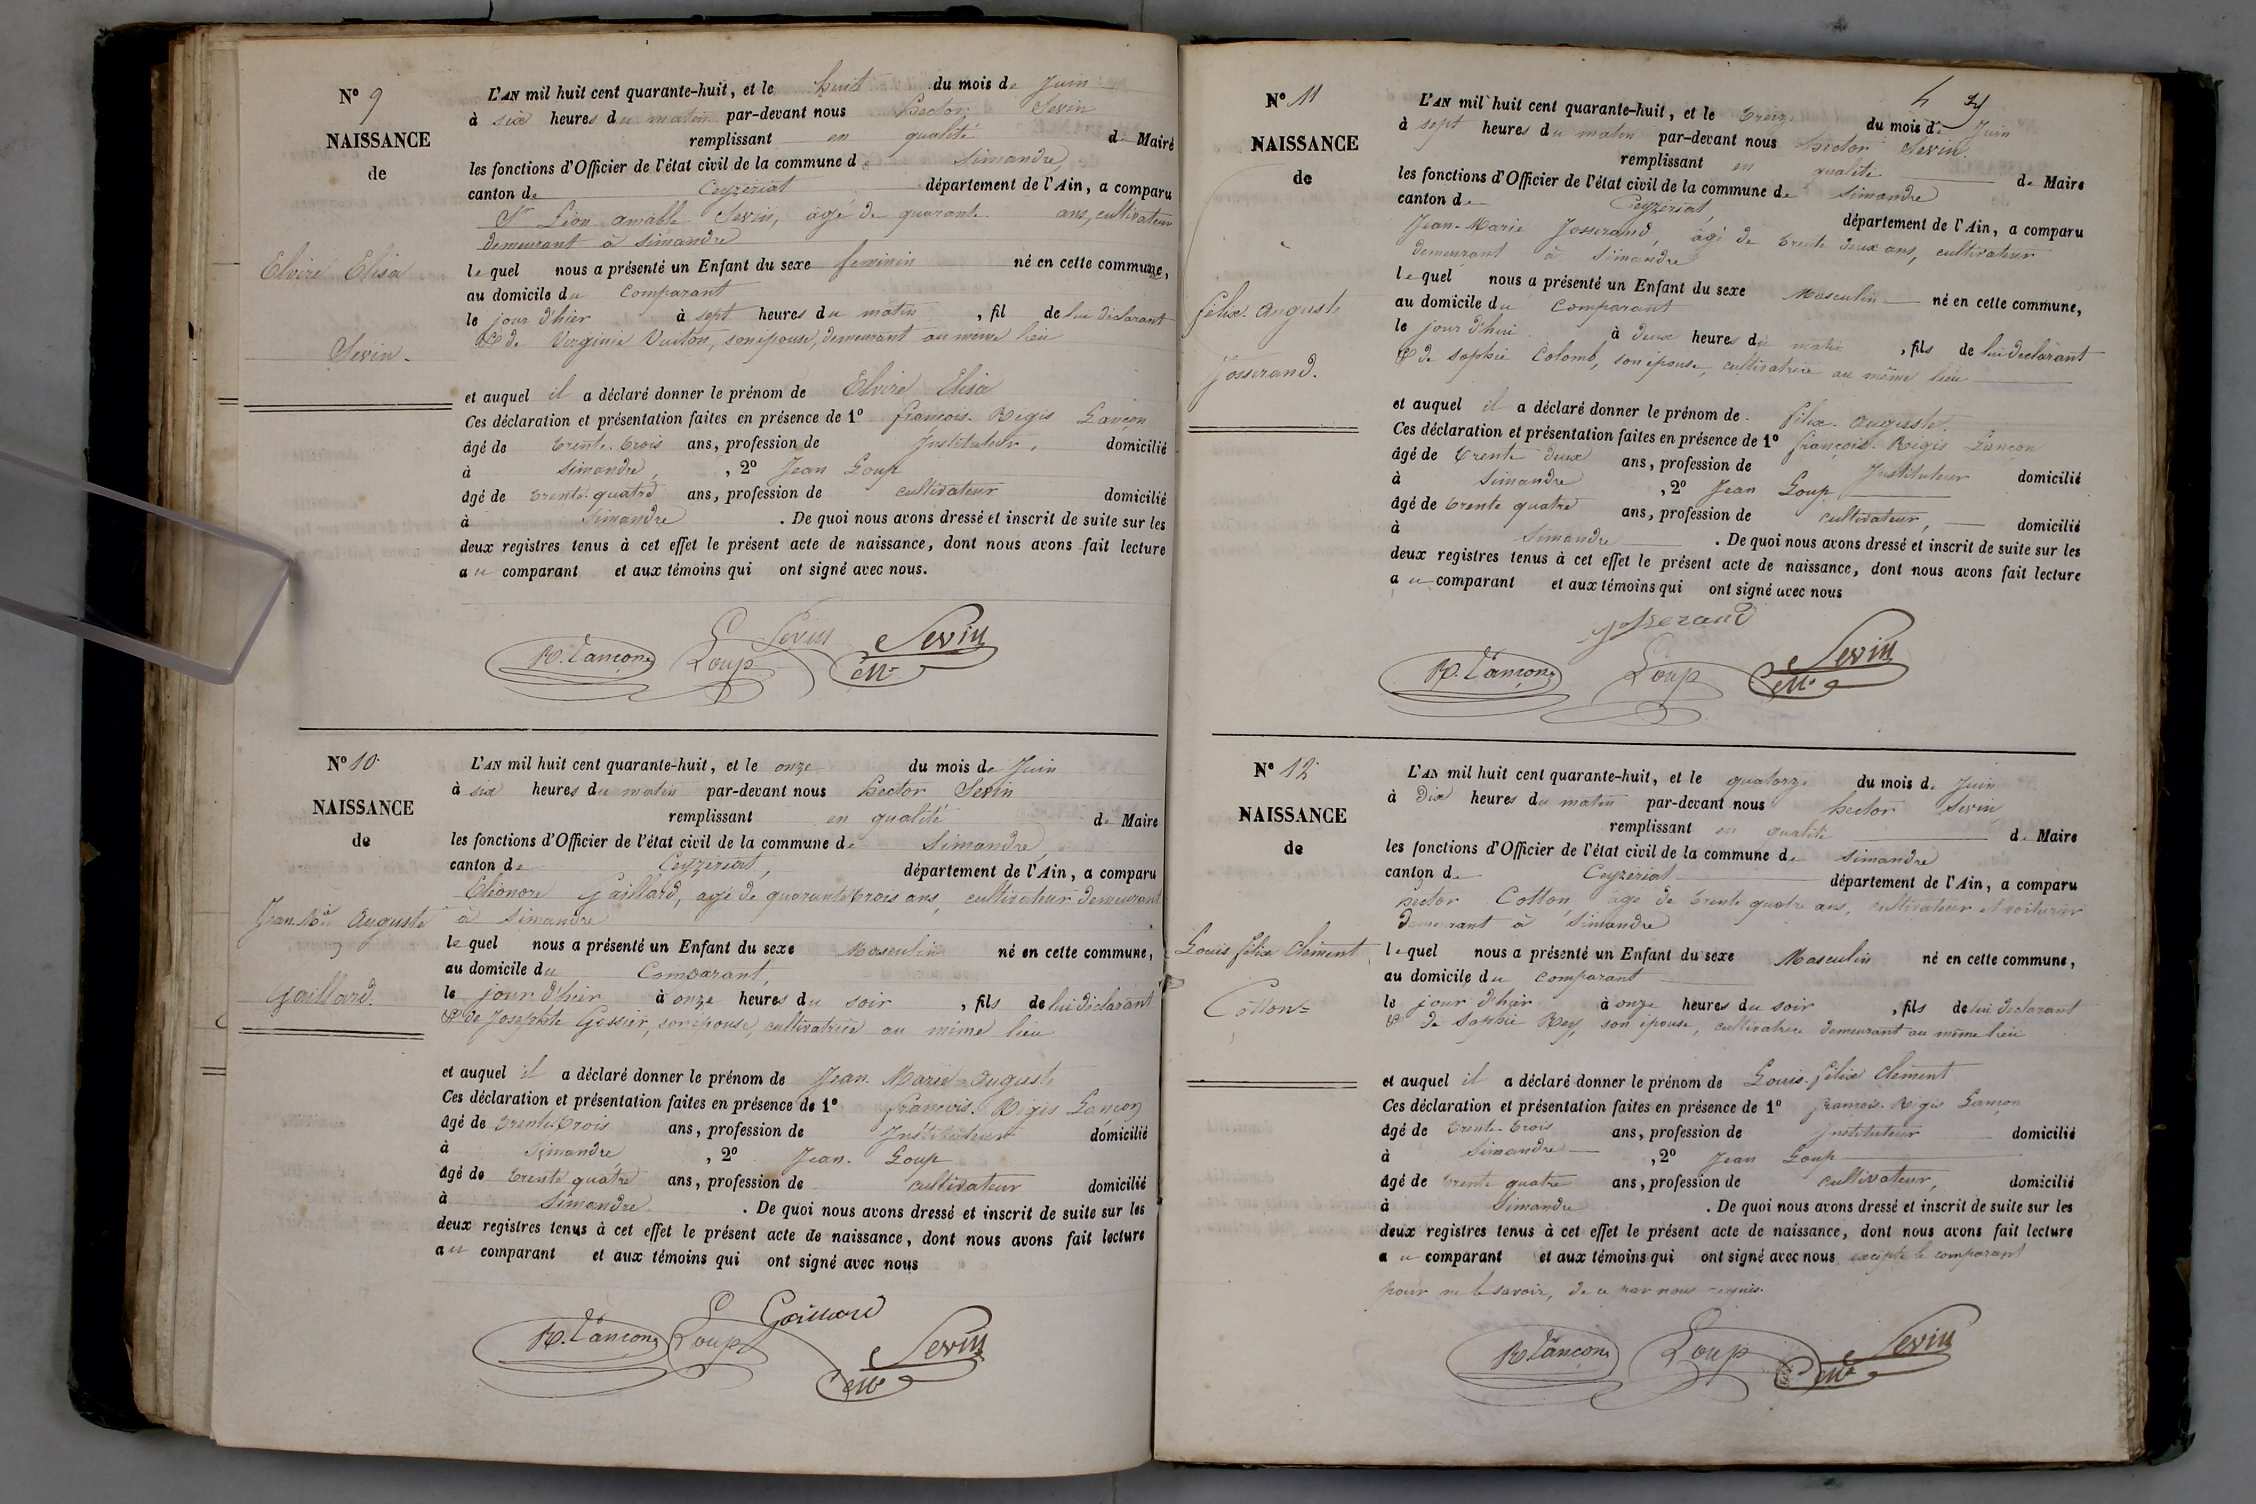 N° 9
NAISSANCE
de
Elvire Elisa
Sevin.
L'AN mil huit cent quarante-huit, et le huit du mois de Juin
à six heures du matin par-devant nous hector Sevin
remplissant en qualité de Maire
les fonctions d'Officier de l'état civil de la commune de Simandre
canton de Ceyzériat département de l'Ain, a comparu
Sr Léon amable Sevin, âgé de quarante ans, cultivateur
demeurant à Simandre
lequel nous a présenté un Enfant du sexe feminin né en cette commune,
au domicile du Comparant
le jour d'hier à sept heures du matin, fil de lui déclarant
& de Virginie, son épouse, demeurant au même lieu
et auquel il a déclaré donner le prénom de Elvire Elisa
Ces déclaration et présentation faites en présence de 1° françois-Régis Lançon
âgé de trente-trois ans, profession de Instituteur, domicilié
à Simandre, 2° Jean Loup
âgé de trente-quatre ans, profession de cultivateur domicilié
à Simandre. De quoi nous avons dressé et inscrit de suite sur les
deux registres tenus à cet effet le présent acte de naissance, dont nous avons fait lecture
au comparant et aux témoins qui ont signé avec nous.
R. Lançon Loup Sevin Sevin
Me
N° 10
NAISSANCE
de
Jean Mie Auguste
Gaillard.
L'AN mil huit cent quarante-huit, et le onze du mois de Juin
à six heures du matin par-devant nous hector Sevin
remplissant en qualité de Maire
les fonctions d'Officier de l'état civil de la commune de Simandre,
canton de Ceyzériat, département de l'Ain, a comparu
Eléonore Gaillard, agé de quarante trois ans, cultivateur demeurant
à Simandre
lequel nous a présenté un Enfant du sexe Masculin né en cette commune,
au domicile du Comparant,
le jour d'hier à onze heures du soir, fils de lui déclarant
& de Josephte Gessier, son épouse, cultivatrice au même lieu
et auquel il a déclaré donner le prénom de Jean Marie Auguste
Ces déclaration et présentation faites en présence de 1° françois-Régis Lançon
âgé de trente-trois ans, profession de Instituteur domicilié
à Simandre, 2° Jean Loup
âgé de trente quatre ans, profession de cultivateur domicilié
à Simandre. De quoi nous avons dressé et inscrit de suite sur les
deux registres tenus à cet effet le présent acte de naissance, dont nous avons fait lecture
au comparant et aux témoins qui ont signé avec nous
R. Lançon Loup Gaillard Sevin
Me
4
N° 11
NAISSANCE
de
félix-auguste
Josserand.
L'AN mil huit cent quarante-huit, et le treize du mois de Juin
à sept heures du matin par-devant nous hector Sevin.
remplissant en qualité de Maire
les fonctions d'Officier de l'état civil de la commune de Simandre
canton de Ceyzériat, département de l'Ain, a comparu
Jean-Marie Josserand, âgé de trente deux ans, cultivateur
demeurant à Simandre
lequel nous a présenté un Enfant du sexe Masculin né en cette commune,
au domicile du Comparant
le jour d'hui à deux heures du matin, fils de lui déclarant
& de Sophie Colomb, son épouse, cultivatrice au même lieu
et auquel il a déclaré donner le prénom de félix-auguste.
Ces déclaration et présentation faites en présence de 1° françois-Régis Lançon
âgé de trente deux ans, profession de Instituteur domicilié
à Simandre, 2° Jean Loup
âgé de trente quatre ans, profession de cultivateur, domicilié
à Simandre. De quoi nous avons dressé et inscrit de suite sur les
deux registres tenus à cet effet le présent acte de naissance, dont nous avons fait lecture
au comparant et aux témoins qui ont signé avec nous
Josserand
R. Lançon Loup Sevin
Me
N° 12
NAISSANCE
de
Louis félix Clément
Cotton
L'AN mil huit cent quarante-huit, et le quatorze du mois de Juin
à Dix heures du matin par-devant nous hector Sevin
remplissant en qualité de Maire
les fonctions d'Officier de l'état civil de la commune de Simandre
canton de Ceyzériat département de l'Ain, a comparu
hector Cotton, âgé de trente quatre ans, cultivateur et voiturier
demeurant à Simandre
lequel nous a présenté un Enfant du sexe Masculin né en cette commune,
au domicile du comparant
le jour d'hier à onze heures du soir, fils de lui déclarant
& de Sophie Rey, son épouse, cultivatrice demeurant au même lieu
et auquel il a déclaré donner le prénom de Louis-félix Clément
Ces déclaration et présentation faites en présence de 1° françois-Régis Lançon
âgé de trente-trois ans, profession de Instituteur domicilié
à Simandre, 2° Jean Loup
âgé de trente quatre ans, profession de cultivateur, domicilié
à Simandre. De quoi nous avons dressé et inscrit de suite sur les
deux registres tenus à cet effet le présent acte de naissance, dont nous avons fait lecture
au comparant et aux témoins qui ont signé avec nous excepté le comparant
pour ne le savoir, de ce par nous requis.
R. Lançon Loup Sevin
Me